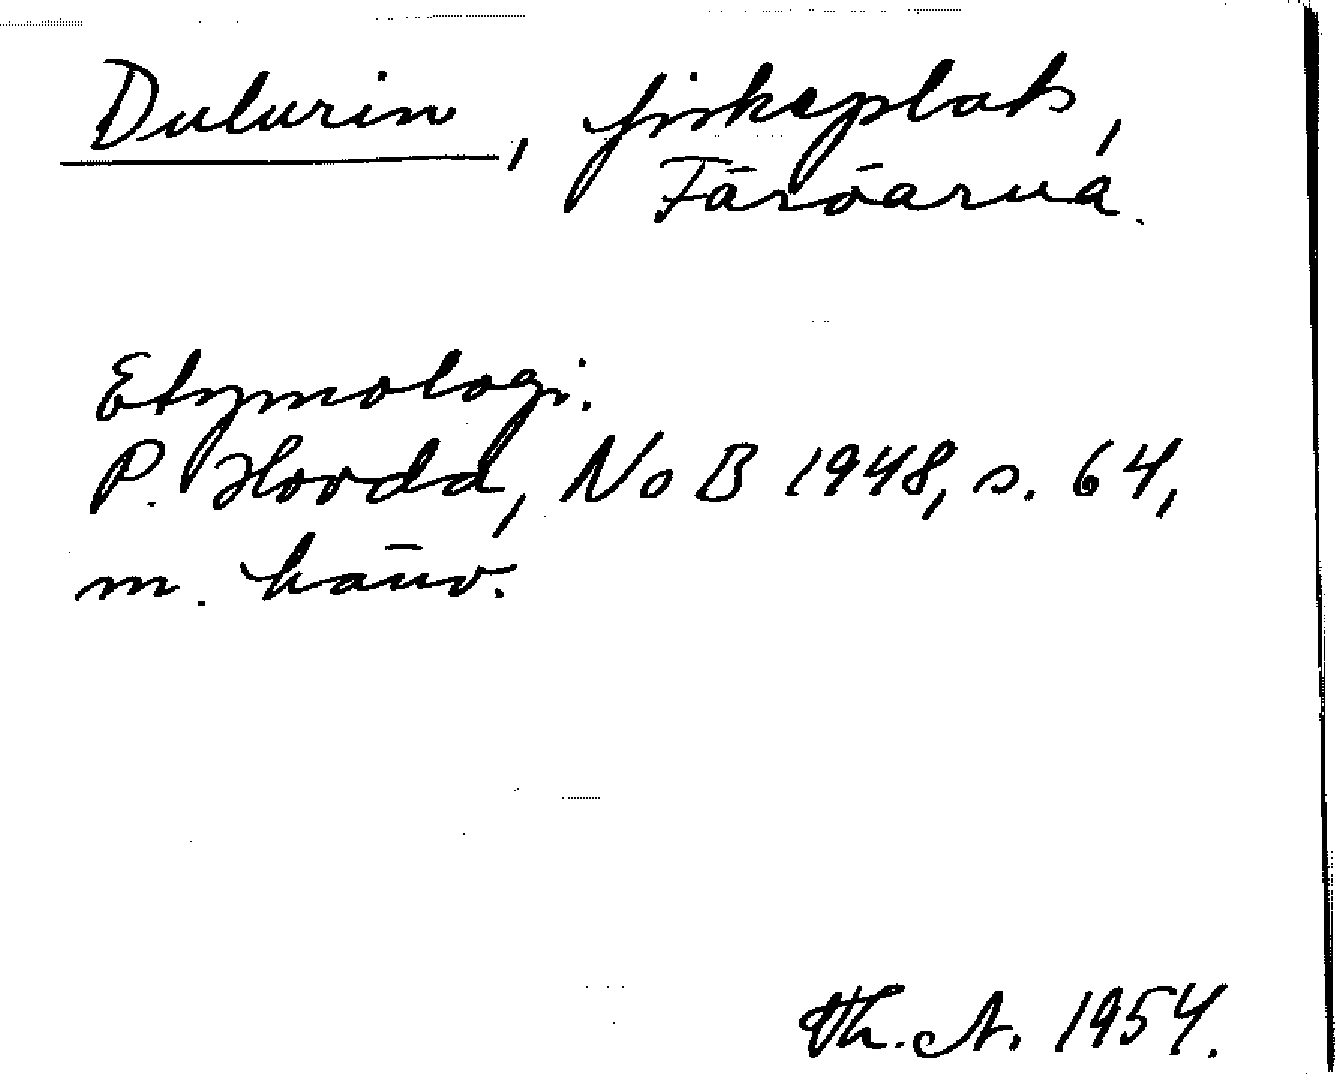 Dulurin, fiskeplats,
Färöarna.
Etymologi.
P. Hovda, NoB 1948, s. 64,
m. hänv.
Th. A. 1954.